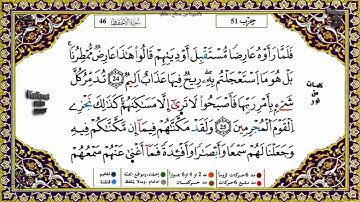 سورة الأحقاف 46
حزب 51
فَلَمَّا رَأَوْهُ عَارِضًا مُّسْتَقْبِلَ أَوْدِيَتِهِمْ قَالُوا۟ هَٰذَا عَارِضٌ مُّمْطِرُنَا
بَلْ هُوَ مَا ٱسْتَعْجَلْتُم بِهِۦ رِيحٌ فِيهَا عَذَابٌ أَلِيمٌ تُدَمِّرُ كُلَّ
شَىْءٍۭ بِأَمْرِ رَبِّهَا فَأَصْبَحُوا۟ لَا يُرَىٰٓ إِلَّا مَسَٰكِنُهُمْ كَذَٰلِكَ نَجْزِى
ٱلْقَوْمَ ٱلْمُجْرِمِينَ وَلَقَدْ مَكَّنَّٰهُمْ فِيمَآ إِن مَّكَّنَّٰكُمْ فِيهِ
وَجَعَلْنَا لَهُمْ سَمْعًا وَأَبْصَٰرًا وَأَفْـِٔدَةً فَمَآ أَغْنَىٰ عَنْهُمْ سَمْعُهُمْ
كلمات
من
نور